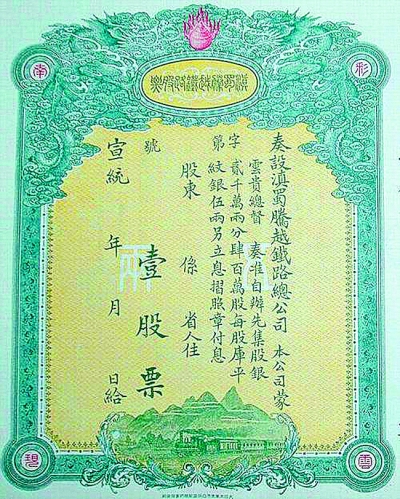 滇蜀騰越鐵路股票
彩
雲
南
奏設滇蜀騰越鐵路總公司 本公司蒙
雲貴總督 奏准自辦先集股銀
貳千萬兩分肆百萬股每股庫平
紋銀伍兩另立息摺照章付息
字第 號
股東 係 省人住
壹股票
宣統 年 月 日給
五兩